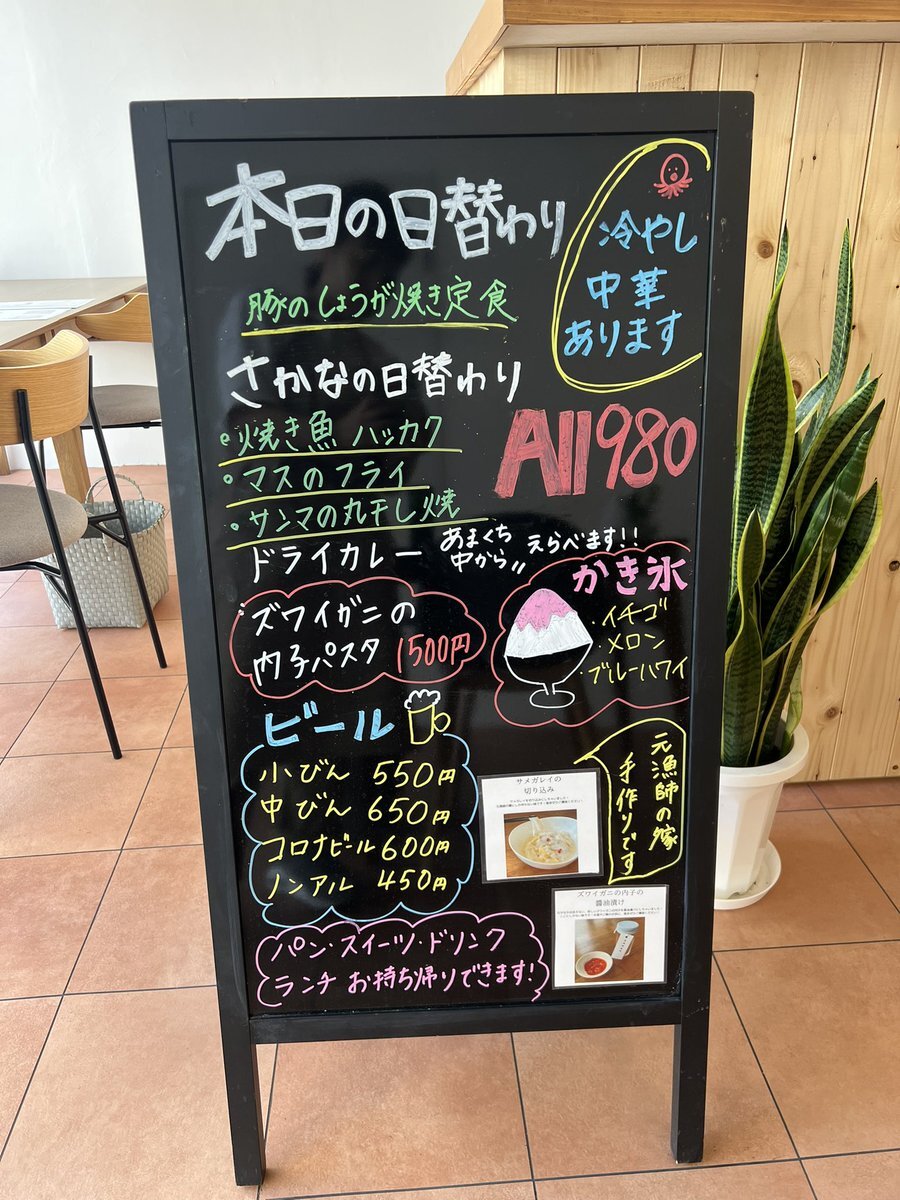 本日の日替わり
冷やし
中華
あります
豚のしょうが焼き定食
さかなの日替わり
・焼き魚 ハッカク
・マスのフライ
・サンマの丸干し焼
All980
ドライカレー
あまくち
中から〃
えらべます!!
ズワイガニの
内子パスタ 1500円
かき氷
・イチゴ
・メロン
・ブルーハワイ
ビール
小びん 550円
中びん 650円
コロナビール 600円
ノンアル 450円
サメガレイの
切り込み
元漁師の嫁
手作りです
ズワイガニの内子の
醤油漬け
パン・スイーツ・ドリンク
ランチ お持ち帰りできます!